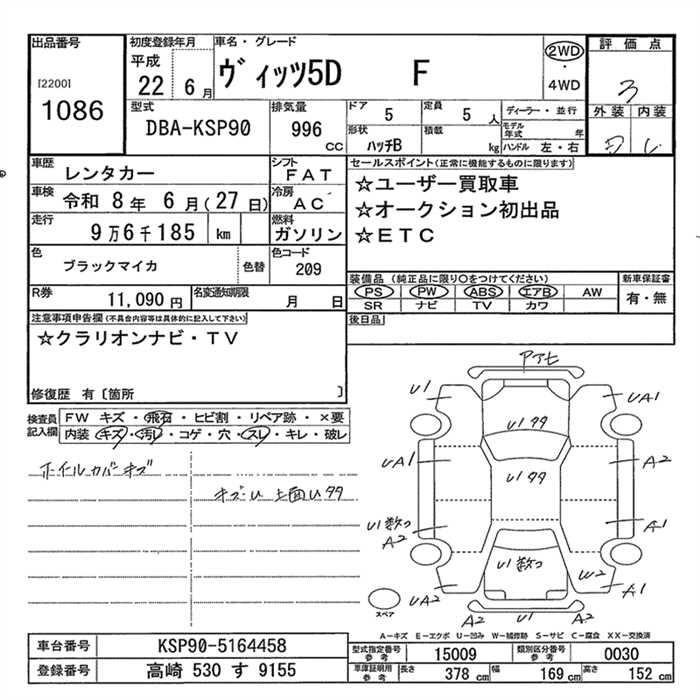 出品番号
[2200]
1086
初度登録年月
平成
22 6月
車名・グレード
ヴィッツ5D F
2WD
・
4WD
評価点
3
外装 内装
型式
DBA-KSP90
排気量
996 CC
ドア 5
定員 5 人
形状 ハッチB
積載 kg
ディーラー・並行
モデル年式 年
ハンドル 左・右
車歴 レンタカー
シフト FAT
車検 令和 8年 6月(27日)
冷房 AC
走行 9万6千185 km
燃料 ガソリン
色 ブラックマイカ 色替
色コード 209
R券 11,090円
名変通知期限 月 日
セールスポイント(正常に機能するものに限ります)
☆ユーザー買取車
☆オークション初出品
☆ETC
装備品(純正品に限り○をつけてください)
PS PW ABS エアB AW
SR ナビ TV カワ
新車保証書
有・無
後日品
注意事項申告欄(不具合内容等は具体的に記入して下さい)
☆クラリオンナビ・TV
修復歴 有〔箇所 〕
検査員記入欄
FW キズ・飛石・ヒビ割・リペア跡・×要
内装 キズ・汚レ・コゲ・穴・スレ・キレ・破レ
ホイルカバーキズ
キズ・U 上面Uタタ
Pアセ
U1
UA1
U1タタ
UA1
A2
U1タタ
U1数つ
A2
A1
U1数つ
W2
UA2
A1
A2
A2
スペア
A-キズ E-エクボ U-凹み W-補修跡 S-サビ C-腐食 XX-交換済
車台番号 KSP90-5164458
登録番号 高崎 530 す 9155
型式指定番号 参考 15009
類別区分番号 参考 0030
車庫証明用 参考 長さ 378 cm 幅 169 cm 高さ 152 cm